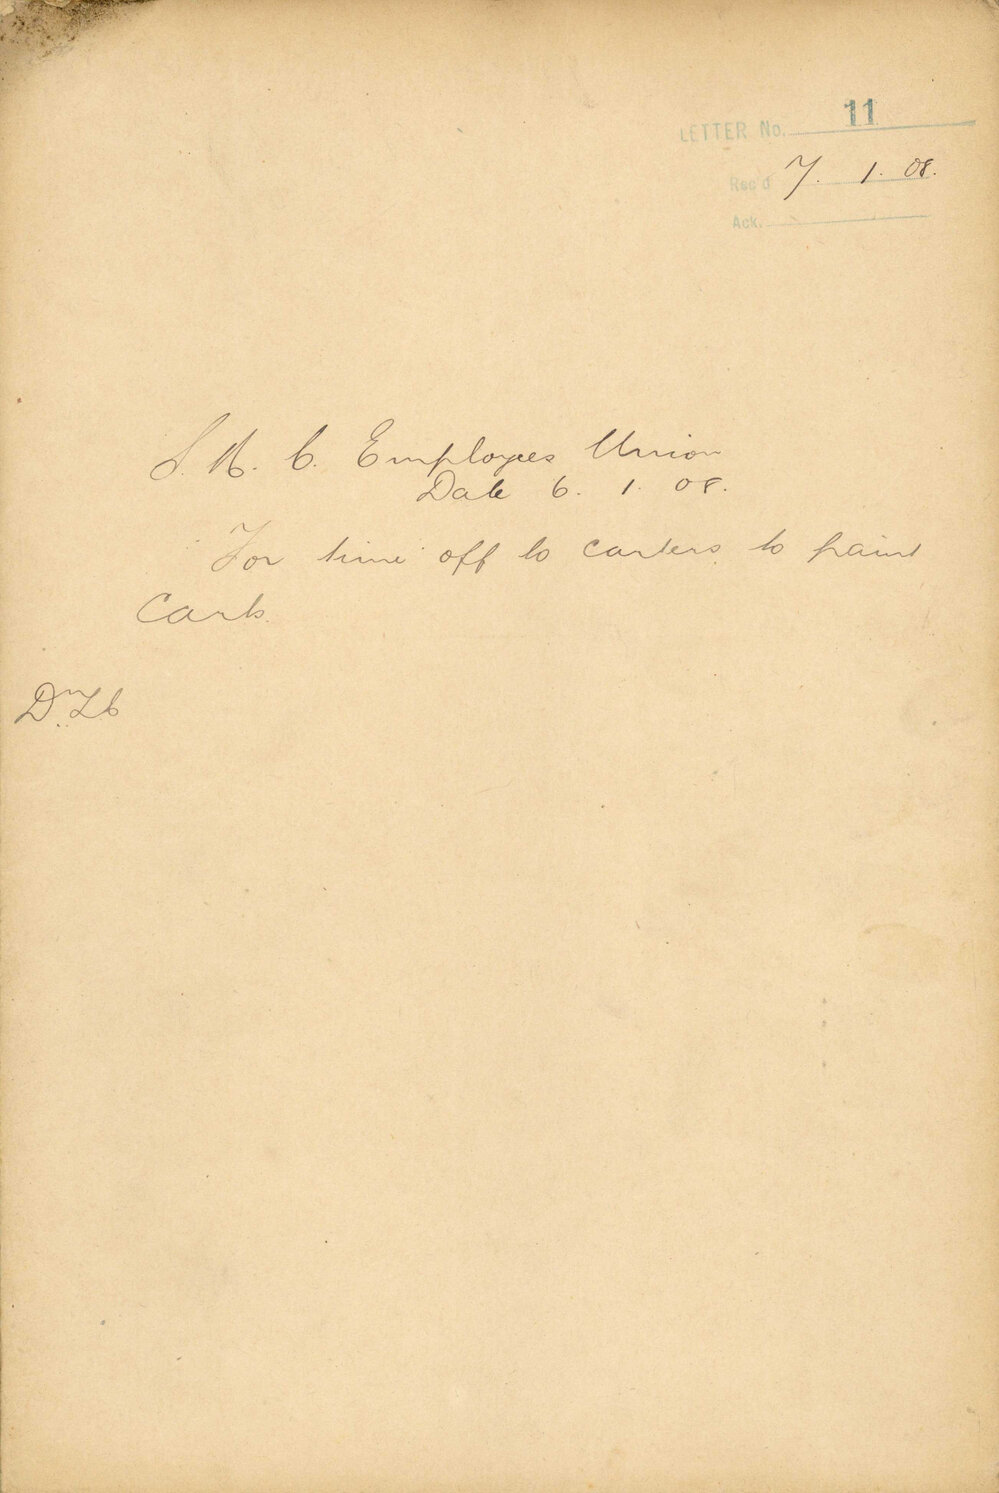 LETTER No. 11
Rec'd 7. 1. 08.
Ack.
S. M. C. Employees Union
Date 6. 1. 08.
For time off to carters to paint
Carts.